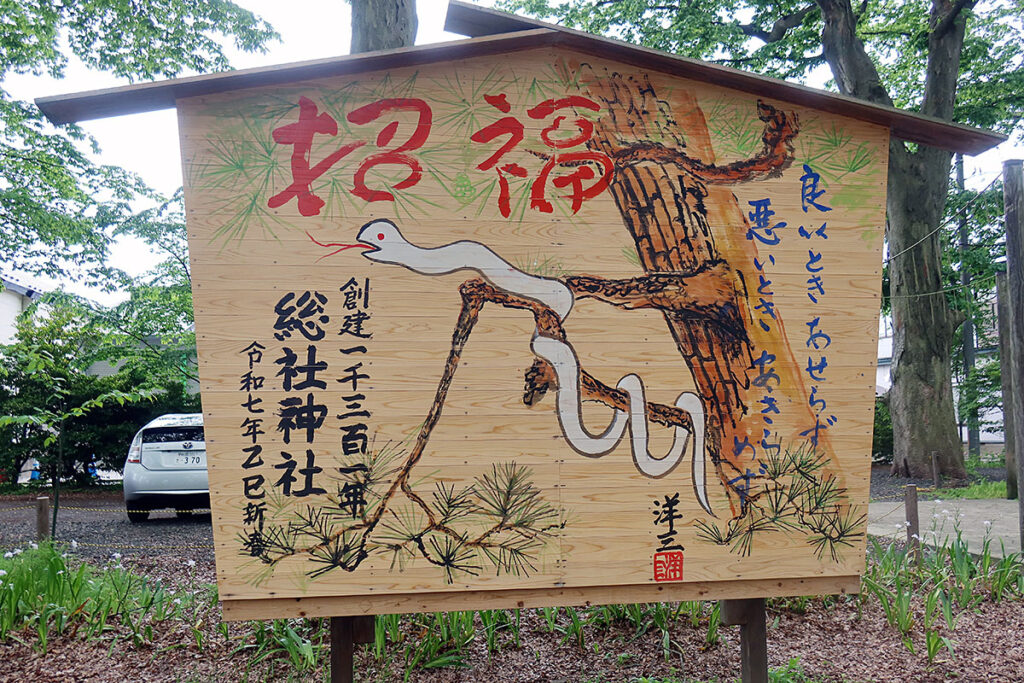 招福
良いとき あせらず
悪いとき あきらめず
創建一千三百一年
総社神社
令和七年乙巳新春
洋三
370